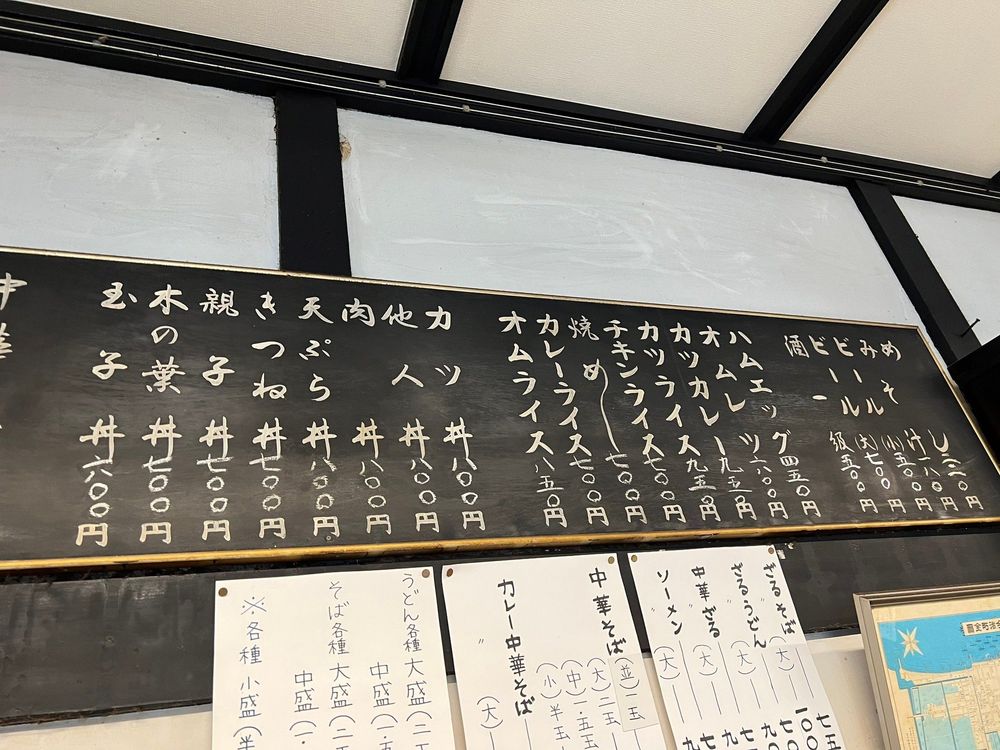 めし
みそ汁一八〇円
ビール(小)五〇〇円
ビール(大)七〇〇円
酒一級五〇〇円
ハムエッグ四五〇円
オムレツ六〇〇円
カツカレー九五〇円
カツライス九五〇円
チキンライス七〇〇円
焼めし七〇〇円
カレーライス七〇〇円
オムライス八五〇円
カツ丼八〇〇円
他人丼八〇〇円
肉丼八〇〇円
天ぷら丼八〇〇円
きつね丼七〇〇円
親子丼七〇〇円
木の葉丼七〇〇円
玉子丼六〇〇円
中華
ざるそば
〃(大)
ざるうどん
〃(大)
中華ざる
〃(大)
ソーメン
〃(大)
中華そば(並)一玉
(大)二玉
(中)一・五玉
(小)半玉
カレー中華そば
〃(大)
うどん各種 大盛(二玉
中盛(一・五
そば各種 大盛(二
中盛(一・
※各種 小盛(半